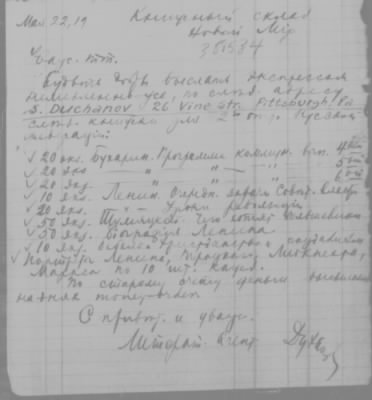 Мая 22, 19
Книжный склад
Новый Мир
381534
Уваж. тт.
Будьте добры выслать экспрессом
по след. адресу
S. Duschanov 26 Vine Str. Pittsburgh Pa
след. книжки для 2го отд. Русской
Федерации
√ 20 экз. Бухарин. Программа коммун. вып. 4
√ 20 экз. " — " — " 5
√ 20 экз. " — " 6
√ 10 экз. Ленин. Очередн. задачи Совет. Власти
√ 20 экз. " Уроки революции
√ 50 экз. Что хотят большевики
√ 50 экз. Биография Ленина
√ 10 экз.
√ Портреты Ленина, Троцкого, Либкнехта,
Маркса по 10 шт. кажд.
По старому счету деньги
на днях money-order.
С привет. и уваж.
Литерат. Агент